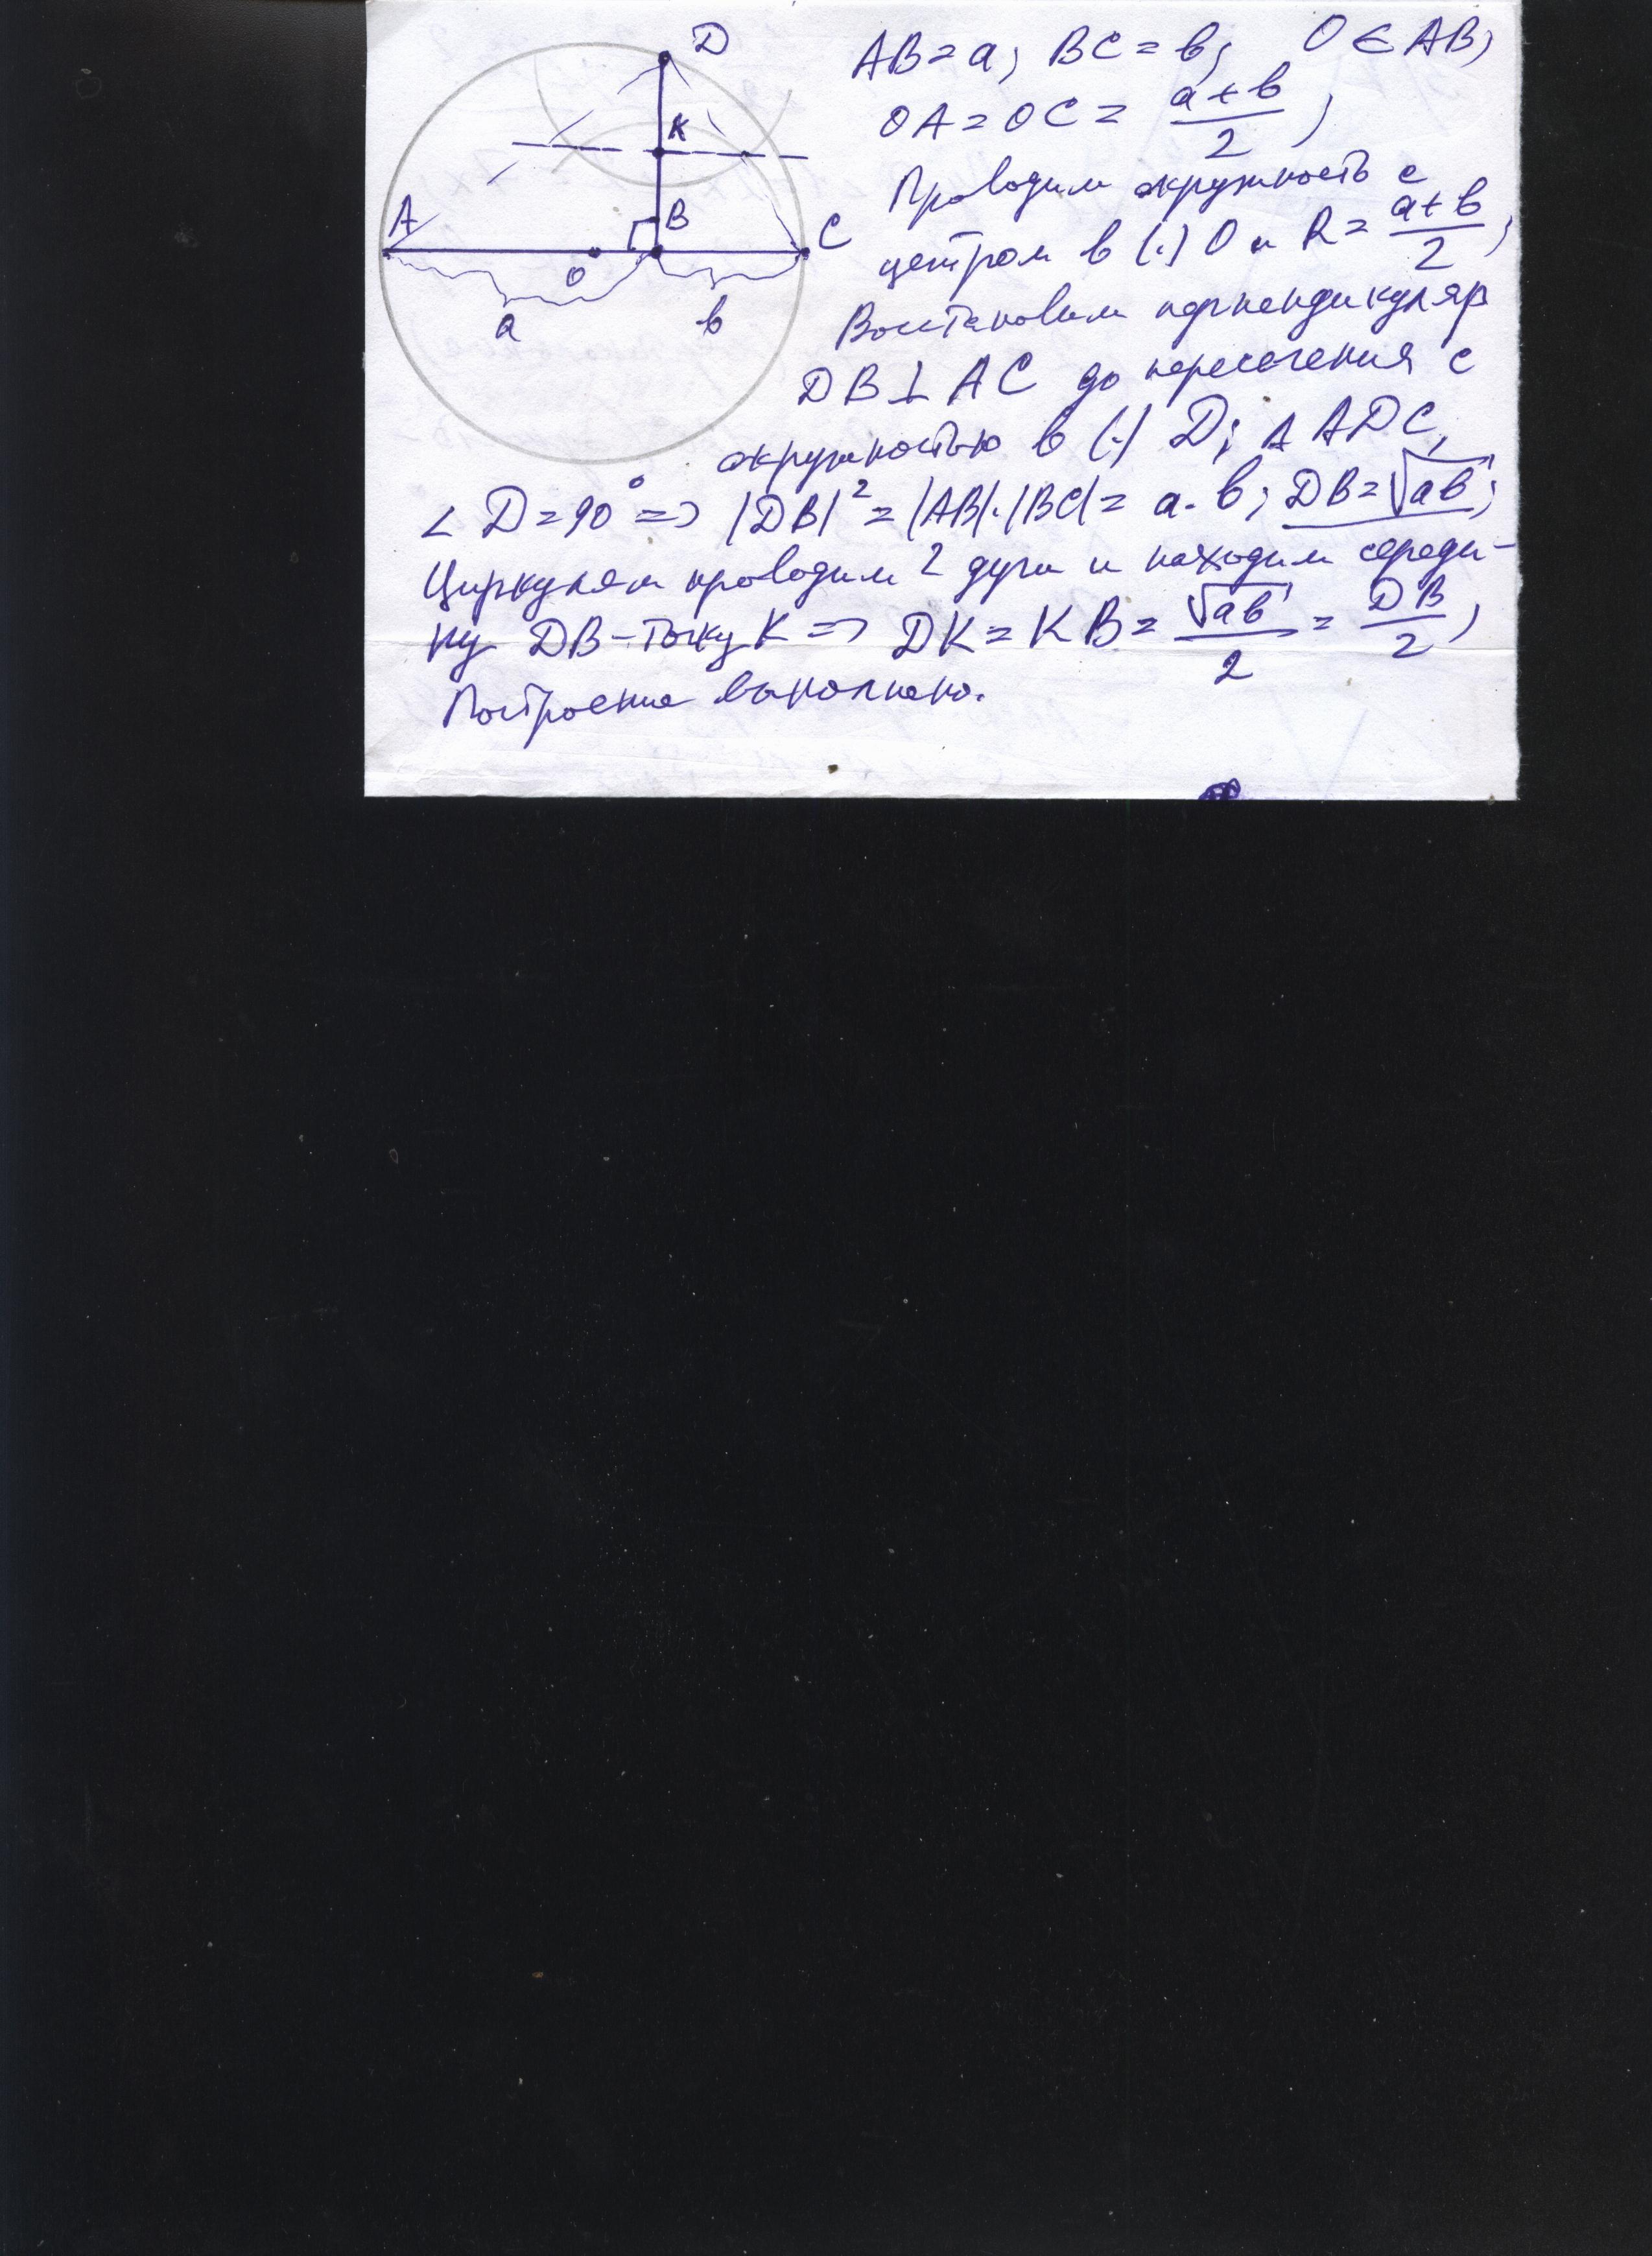 D
K
A
B
C
O
a
b
AB=a; BC=b; O∈AB;
OA=OC= (a+b)/2;
Проводим окружность с
центром в (·) O и R= (a+b)/2;
Восстановим перпендикуляр
DB⊥AC до пересечения с
окружностью в (·) D; △ADC,
∠D=90° => |DB|²=|AB|·|BC|=a·b; DB=√ab;
Циркулем проводим 2 дуги и находим середи-
ну DB-точку K => DK=KB= √ab/2 = DB/2;
Построение выполнено.